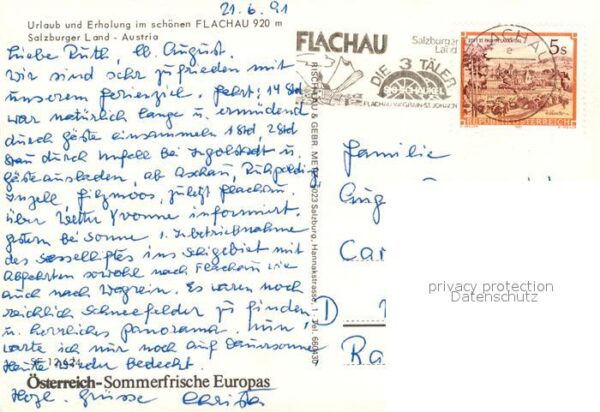 21.6.91
Urlaub und Erholung im schönen FLACHAU 920 m
Salzburger Land - Austria
Liebe Ruth, lb. August.
Wir sind sehr zufrieden mit
unserem Ferienziel. Fahrt: 14 Std
war natürlich lange u. ermüdend
durch Gäste einsammeln 1 Std, 2 Std
Stau durch Unfall bei Ingolstadt u.
Gäste ausladen, ab Aschau, Ruhpolding
Inzell, Filzmoos, zuletzt Flachau.
Über Wetter Yvonne informiert.
Gestern bei Sonne 1. Inbetriebnahme
des Sessellifts ins Skigebiet mit
Abfahrten sowohl nach Flachau wie
auch nach Wagrein. Es waren noch
reichlich Schneefelder zu finden
u. herrliches Panorama. Nun
warte ich nur noch auf Dauersonne
Heute wieder bedeckt.
SE 12 624
Österreich-Sommerfrische Europas
Herzl. Grüsse Christa
RISCHKAU & GEBR. METZ, 5023 Salzburg, Hannakstrasse, Tel. 660430
FLACHAU
Salzburger
Land
DIE 3 TÄLER
SKISCHAUKEL
FLACHAU-WAGRAIN-ST. JOHANN
FLACHAU
5s
REPUBLIK ÖSTERREICH
Familie
Aug
Car
D
Ra
privacy protection
Datenschutz